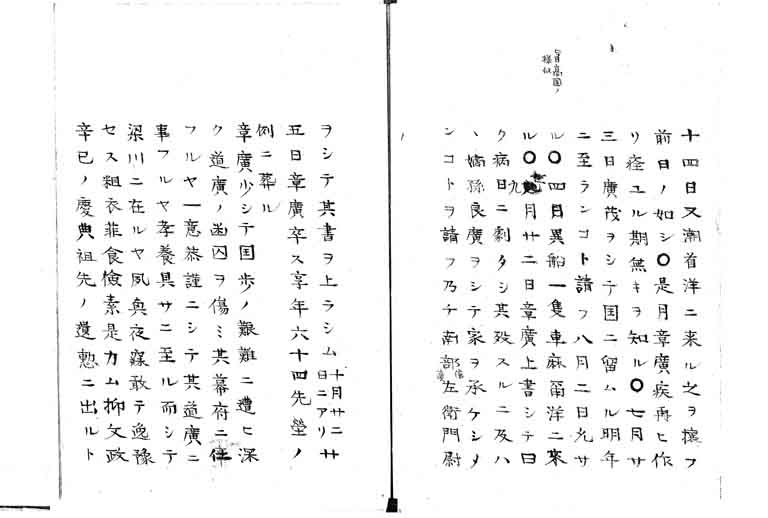 冒高国ノ
様似
十四日又潮首洋ニ来ル之ヲ攘フ
前日ノ如シ〇是月章廣疾再ヒ作
リ痊ユル期無キヲ知ル〇七月廿
三日廣茂ヲシテ国ニ留ムル明年
ニ至ランコト請フ八月二日允サ
ル〇四日異船一隻車麻爾洋ニ来
ル〇九月廿二日章廣上書シテ曰
ク病日ニ劇タシ其歿スルニ及ハ
ヽ嫡孫良廣ヲシテ家ヲ承ケシメ
ンコトヲ請フ乃チ南部左衛門尉
信
ヲシテ其書ヲ上ラシム十月廿二日ニアリ廿
五日章廣卒ス享年六十四先塋ノ
例ニ葬ル
章廣少シテ国歩ノ艱難ニ遭ヒ深
ク道廣ノ幽囚ヲ傷ミ其幕府ニ任
フルヤ一意恭謹ニシテ其道廣ニ
事フルヤ孝養具サニ至ル而シテ
梁川ニ在ルヤ夙興夜寐敢テ逸豫
セス粗衣菲食検素是力ム抑文政
辛巳ノ慶典祖先ノ遺懃ニ出ルト